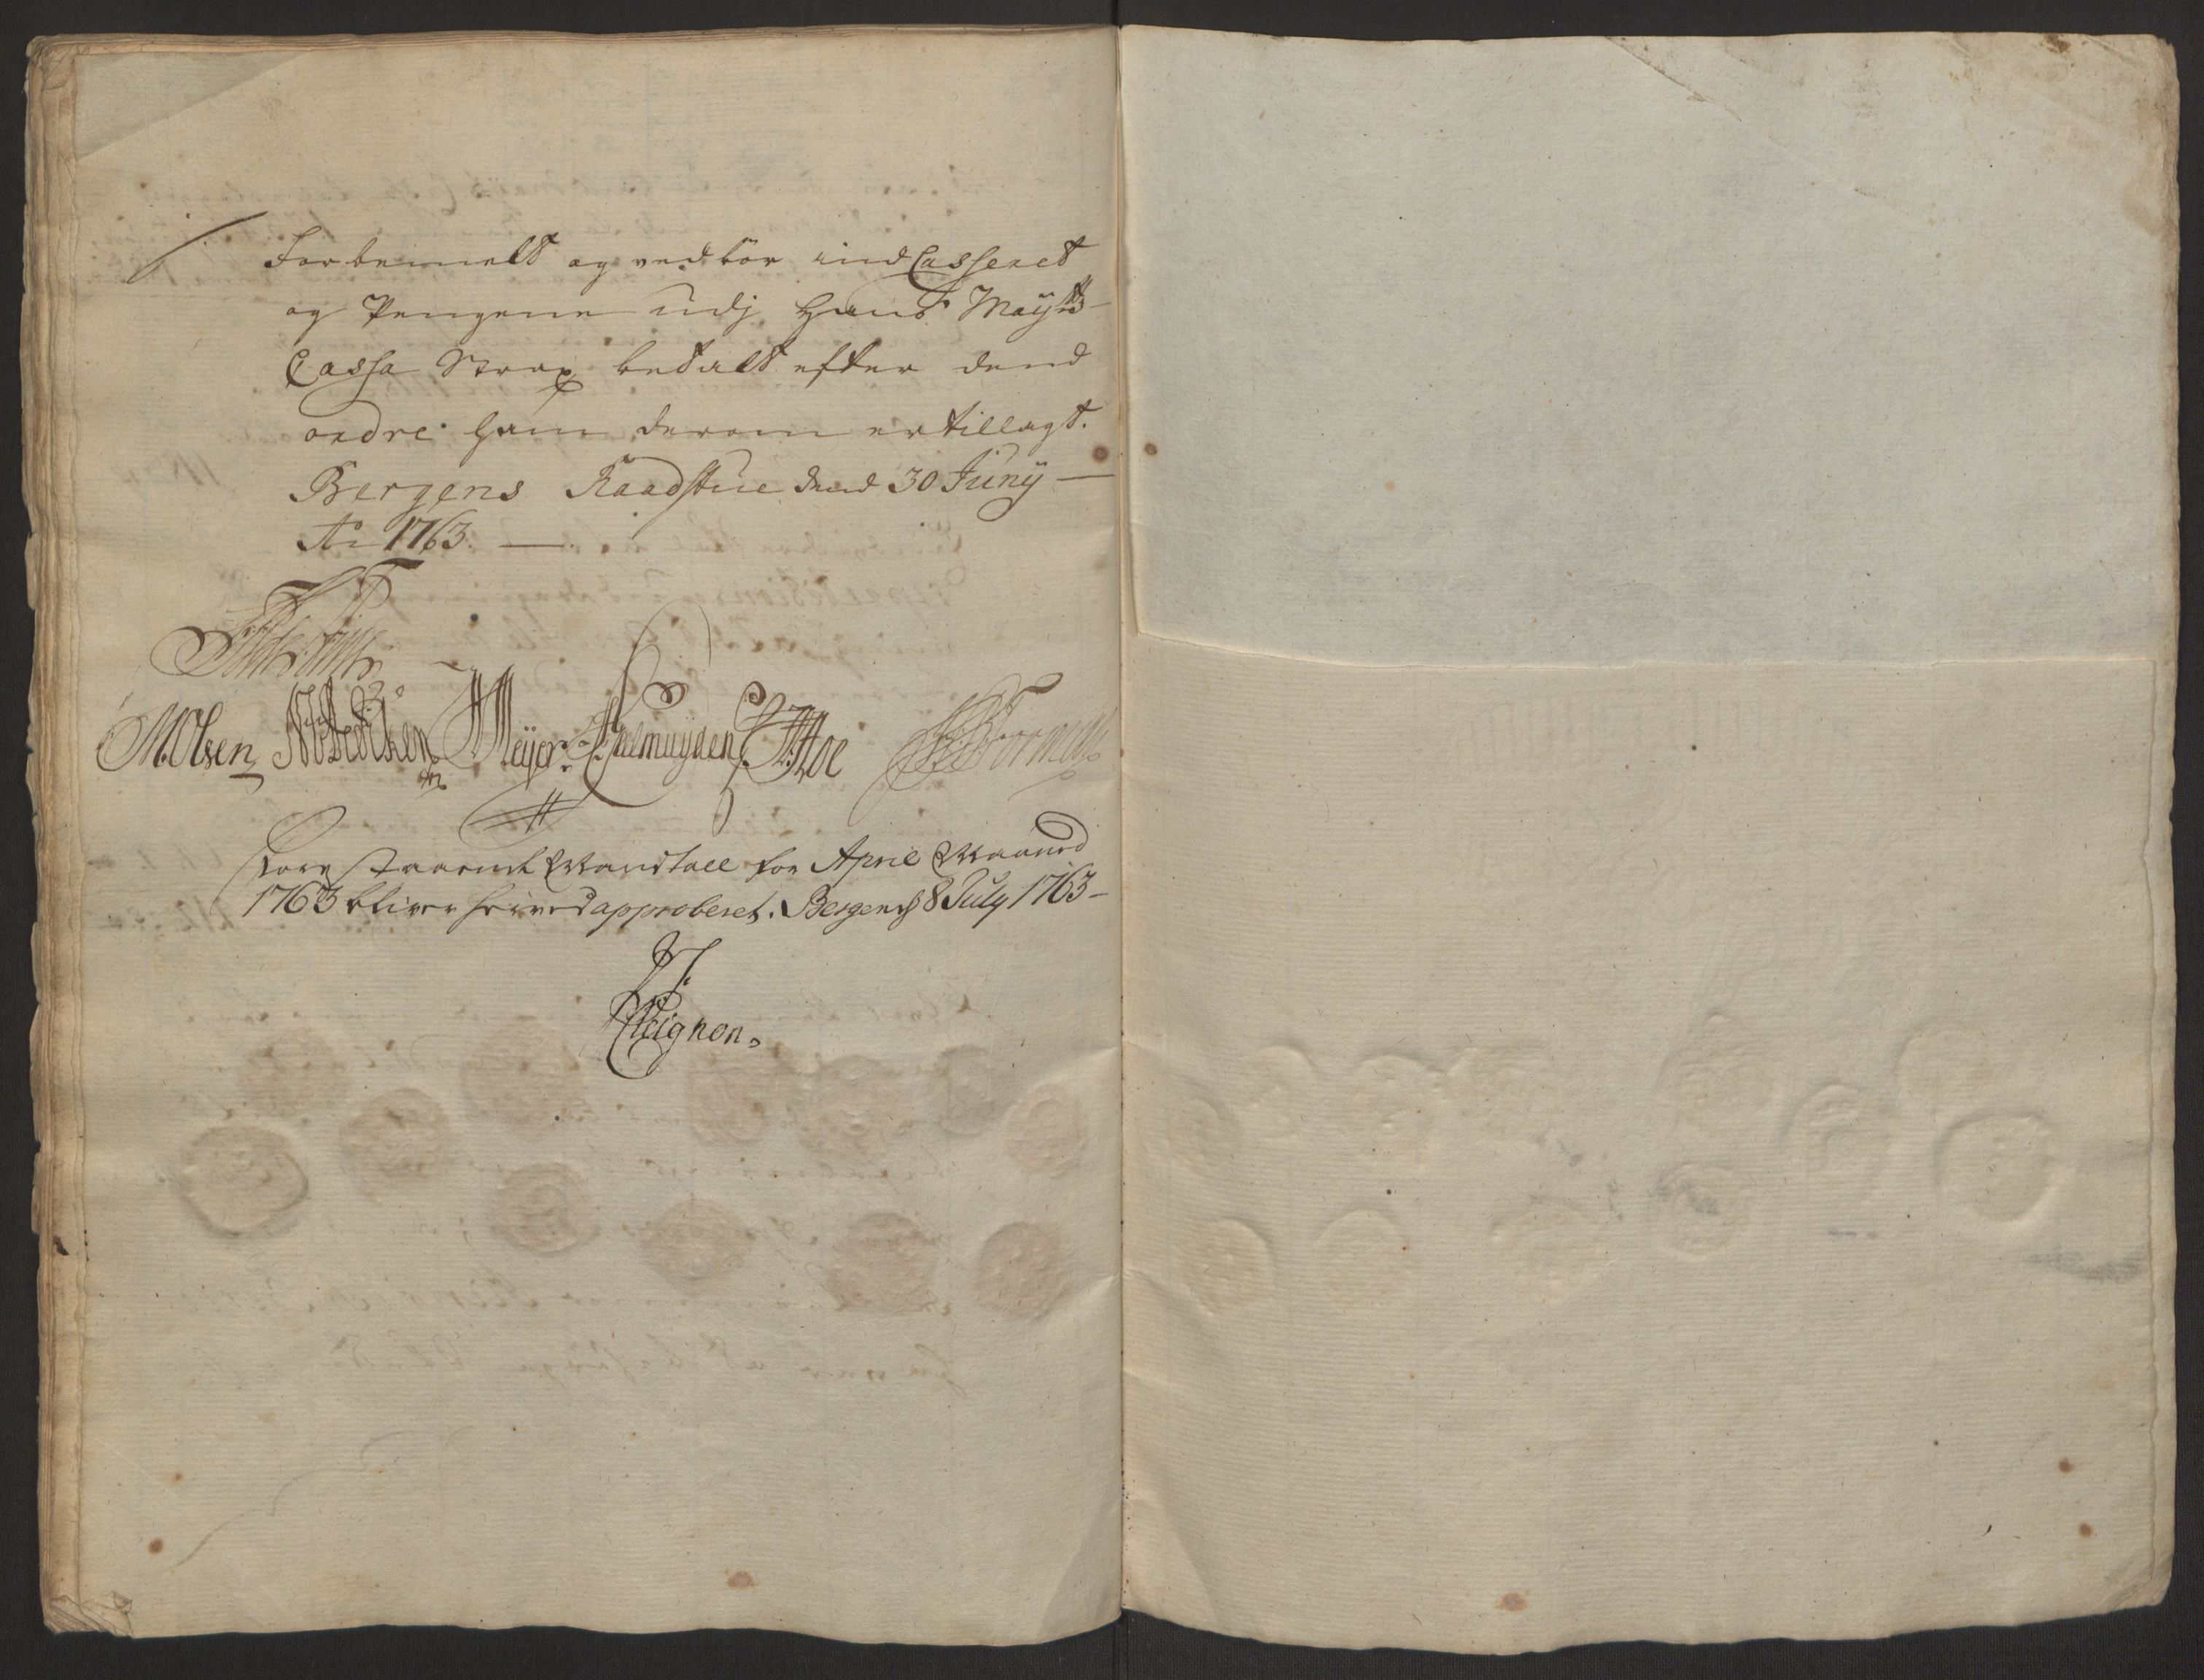 Forbemelt og vedbör ind Casseret
og Pengene udj Hans Mayts
Cassa Strax betalt efter dend
ordre ham derom er tillagt.
Bergens Raadstue dend 30 Juny
Ao 1763.
M. Olsen HMeyer Halmuyden
Forestaaende Mandtall for April Maaned
1763 bliver herved approberet. Bergen d 8 July 1763